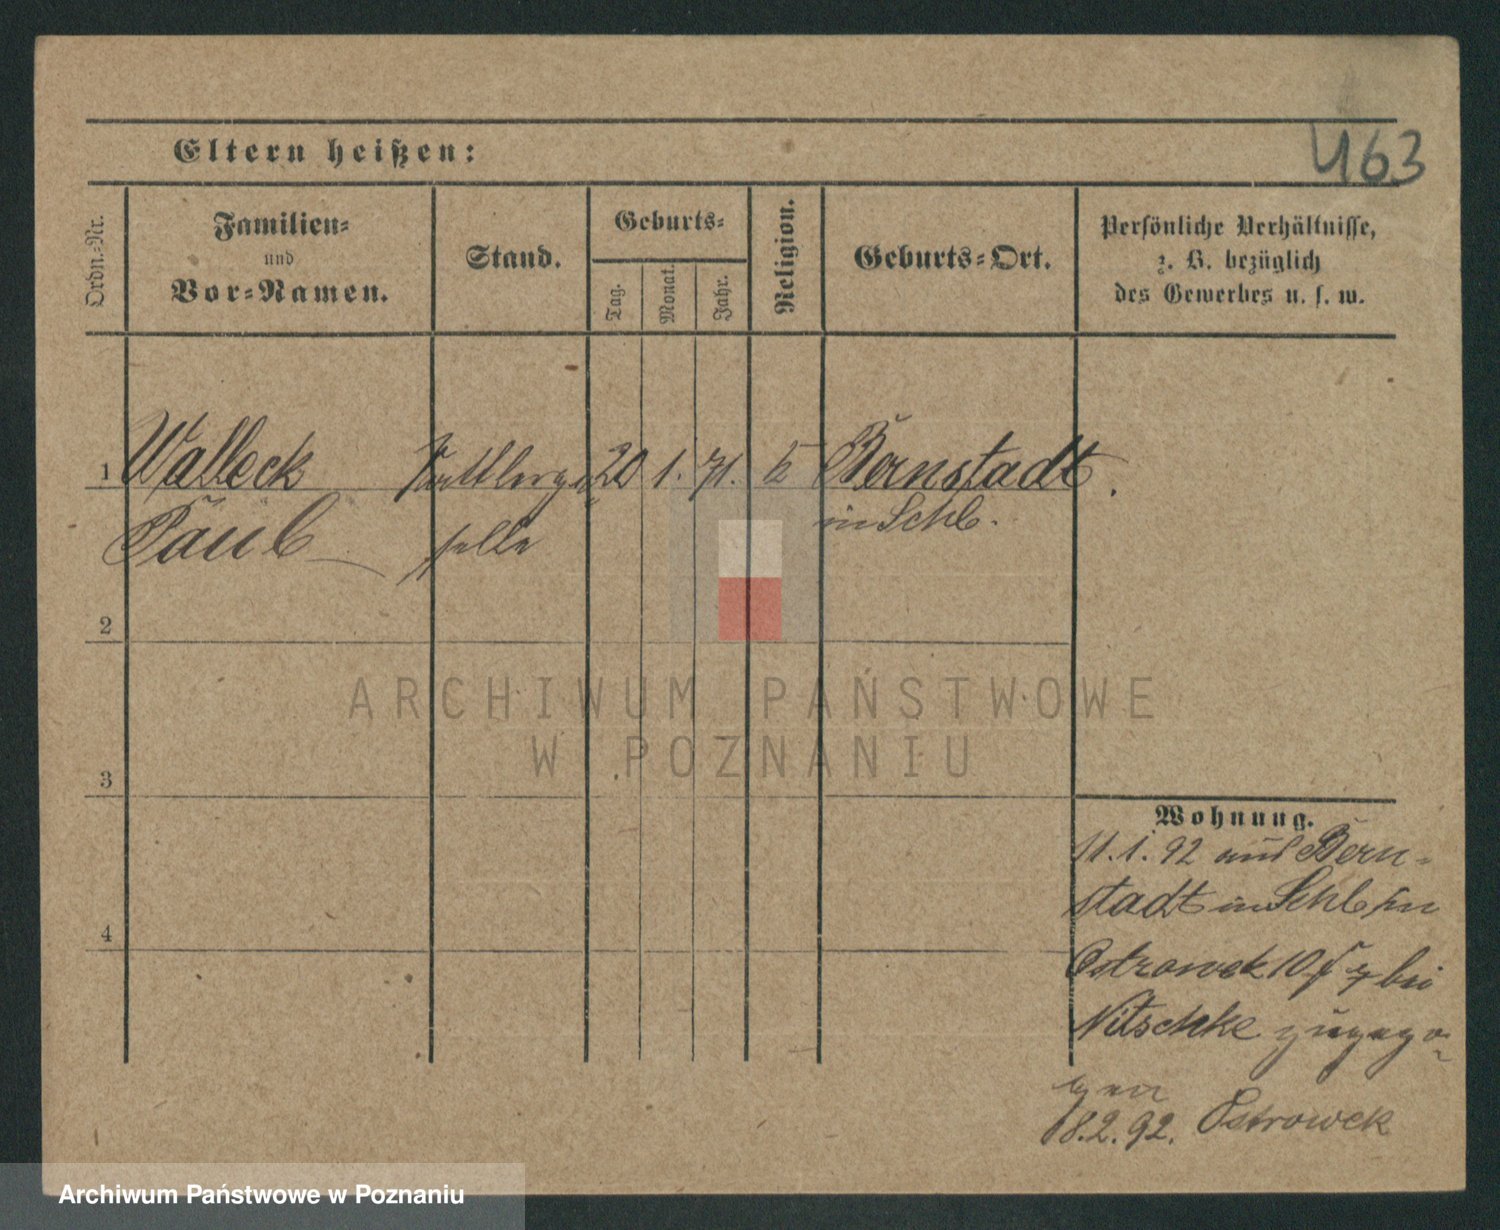 463
Eltern heißen:
Ordn.=Nr.
Familien=
und
Vor=Namen.
Stand.
Geburts=
Tag.
Monat.
Jahr.
Religion.
Geburts=Ort.
Persönliche Verhältnisse,
z. B. bezüglich
des Gewerbes u. s. w.
1 Walleck 20 1. 71. Bernstadt.
Paul in Schl.
2
3
4
Wohnung.
11.1.92 aus Bern=
stadt in Schl in
Ostrowek 10 bei
Nitschke zugezo=
gen
18.2.92. Ostrowek
ARCHIWUM PAŃSTWOWE
W POZNANIU
Archiwum Państwowe w Poznaniu